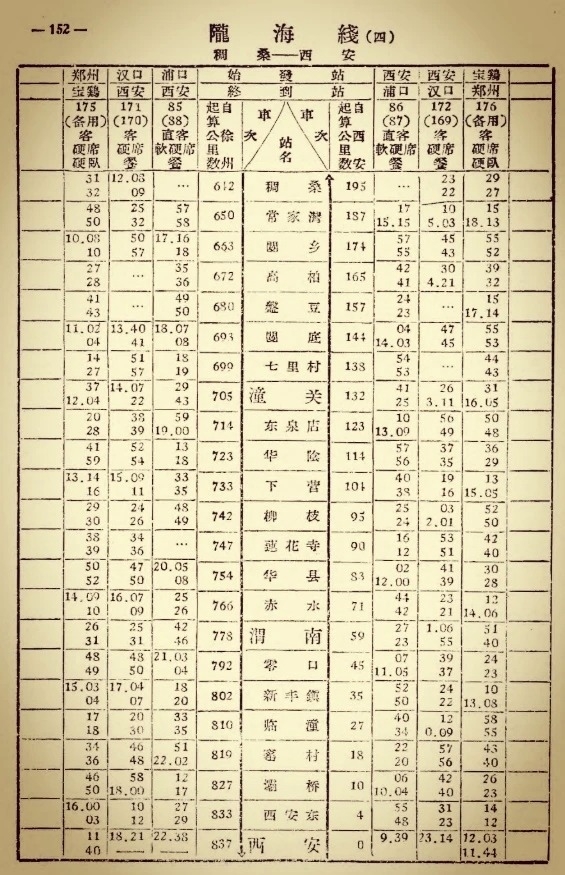 —152—
隴 海 綫 (四)
稠 桑——西 安
郑州 汉口 浦口 始 發 站 西安 西安 宝鷄
宝鷄 西安 西安 終 到 站 浦口 汉口 郑州
175 171 85 起自 車 車 起自 86 172 176
(备用) (170) (88) 算徐 次 次 算西 (87) (169) (备用)
客 客 直客 公州 公安 直客 客 客
硬席 硬席 軟硬席 里 站 里 軟硬席 硬席 硬席
硬臥 餐 餐 数 名 数 餐 餐 硬臥
31 12.08 … 642 稠 桑 195 … 23 29
32 09 22 27
48 25 57 650 常 家 灣 187 17 10 15
50 32 58 15.15 5.03 18.13
10.08 50 17.16 663 閿 乡 174 57 45 55
10 57 18 55 43 52
27 … 35 672 高 柏 165 42 30 39
28 36 41 4.21 32
41 … 49 680 盤 豆 157 24 … 15
43 50 23 17.14
11.02 13.40 18.07 693 閿 底 144 04 47 55
04 41 08 14.03 45 53
14 51 18 699 七 里 村 138 54 … 44
27 57 19 53 43
37 14.07 29 705 潼 关 132 41 26 31
12.04 22 43 25 3.11 16.05
20 38 59 714 东 泉 店 123 10 56 50
28 39 19.00 13.09 49 48
41 52 13 723 华 陰 114 57 37 36
59 54 18 56 35 29
13.14 15.09 33 733 下 营 104 40 19 13
16 11 35 38 16 15.05
29 24 48 742 柳 枝 95 25 03 52
30 26 49 24 2.01 50
38 34 … 747 蓮 花 寺 90 16 53 42
39 36 12 51 40
50 47 20.05 754 华 县 83 02 41 30
52 50 08 12.00 39 28
14.09 16.07 25 766 赤 水 71 44 23 12
10 09 26 42 21 14.06
26 25 42 778 渭 南 59 27 1.06 51
31 31 46 23 55 40
48 48 21.03 792 零 口 45 07 39 24
49 50 04 11.05 37 23
15.03 17.04 18 802 新 丰 鎭 35 52 24 10
04 07 20 50 22 13.08
17 20 33 810 临 潼 27 40 12 58
18 30 35 34 0.09 55
34 46 51 819 窰 村 18 22 57 43
36 48 22.02 20 56 40
46 58 12 827 灞 桥 10 06 42 26
50 18.00 17 10.04 40 23
16.00 10 27 833 西 安 东 4 55 31 14
03 12 29 48 23 12
11 18.21 22.38 837 西 安 0 9.39 23.14 12.03
40 —— —— 11.44